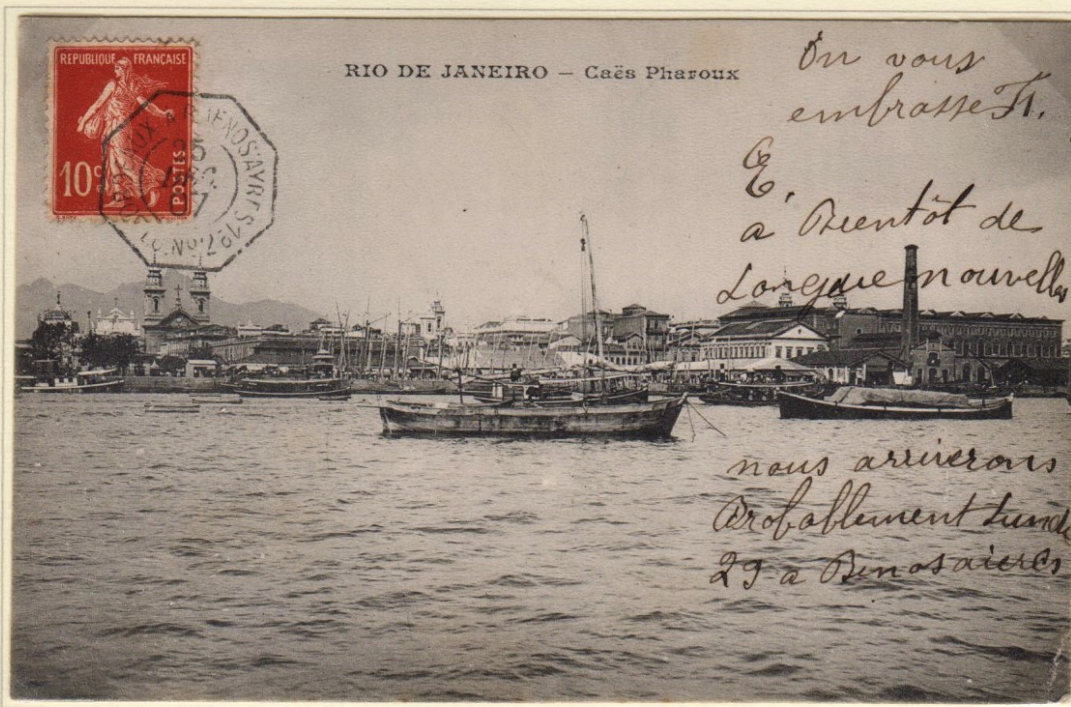 REPUBLIQUE FRANÇAISE
10c
POSTES
BUENOS-AYRES 1º
L.N. Nº 2
RIO DE JANEIRO – Caës Pharoux
On vous
embrasse
E.
a Bientôt de
Longue nouvelles
nous arriverons
Probablement Lundi
29 a Benosaieres